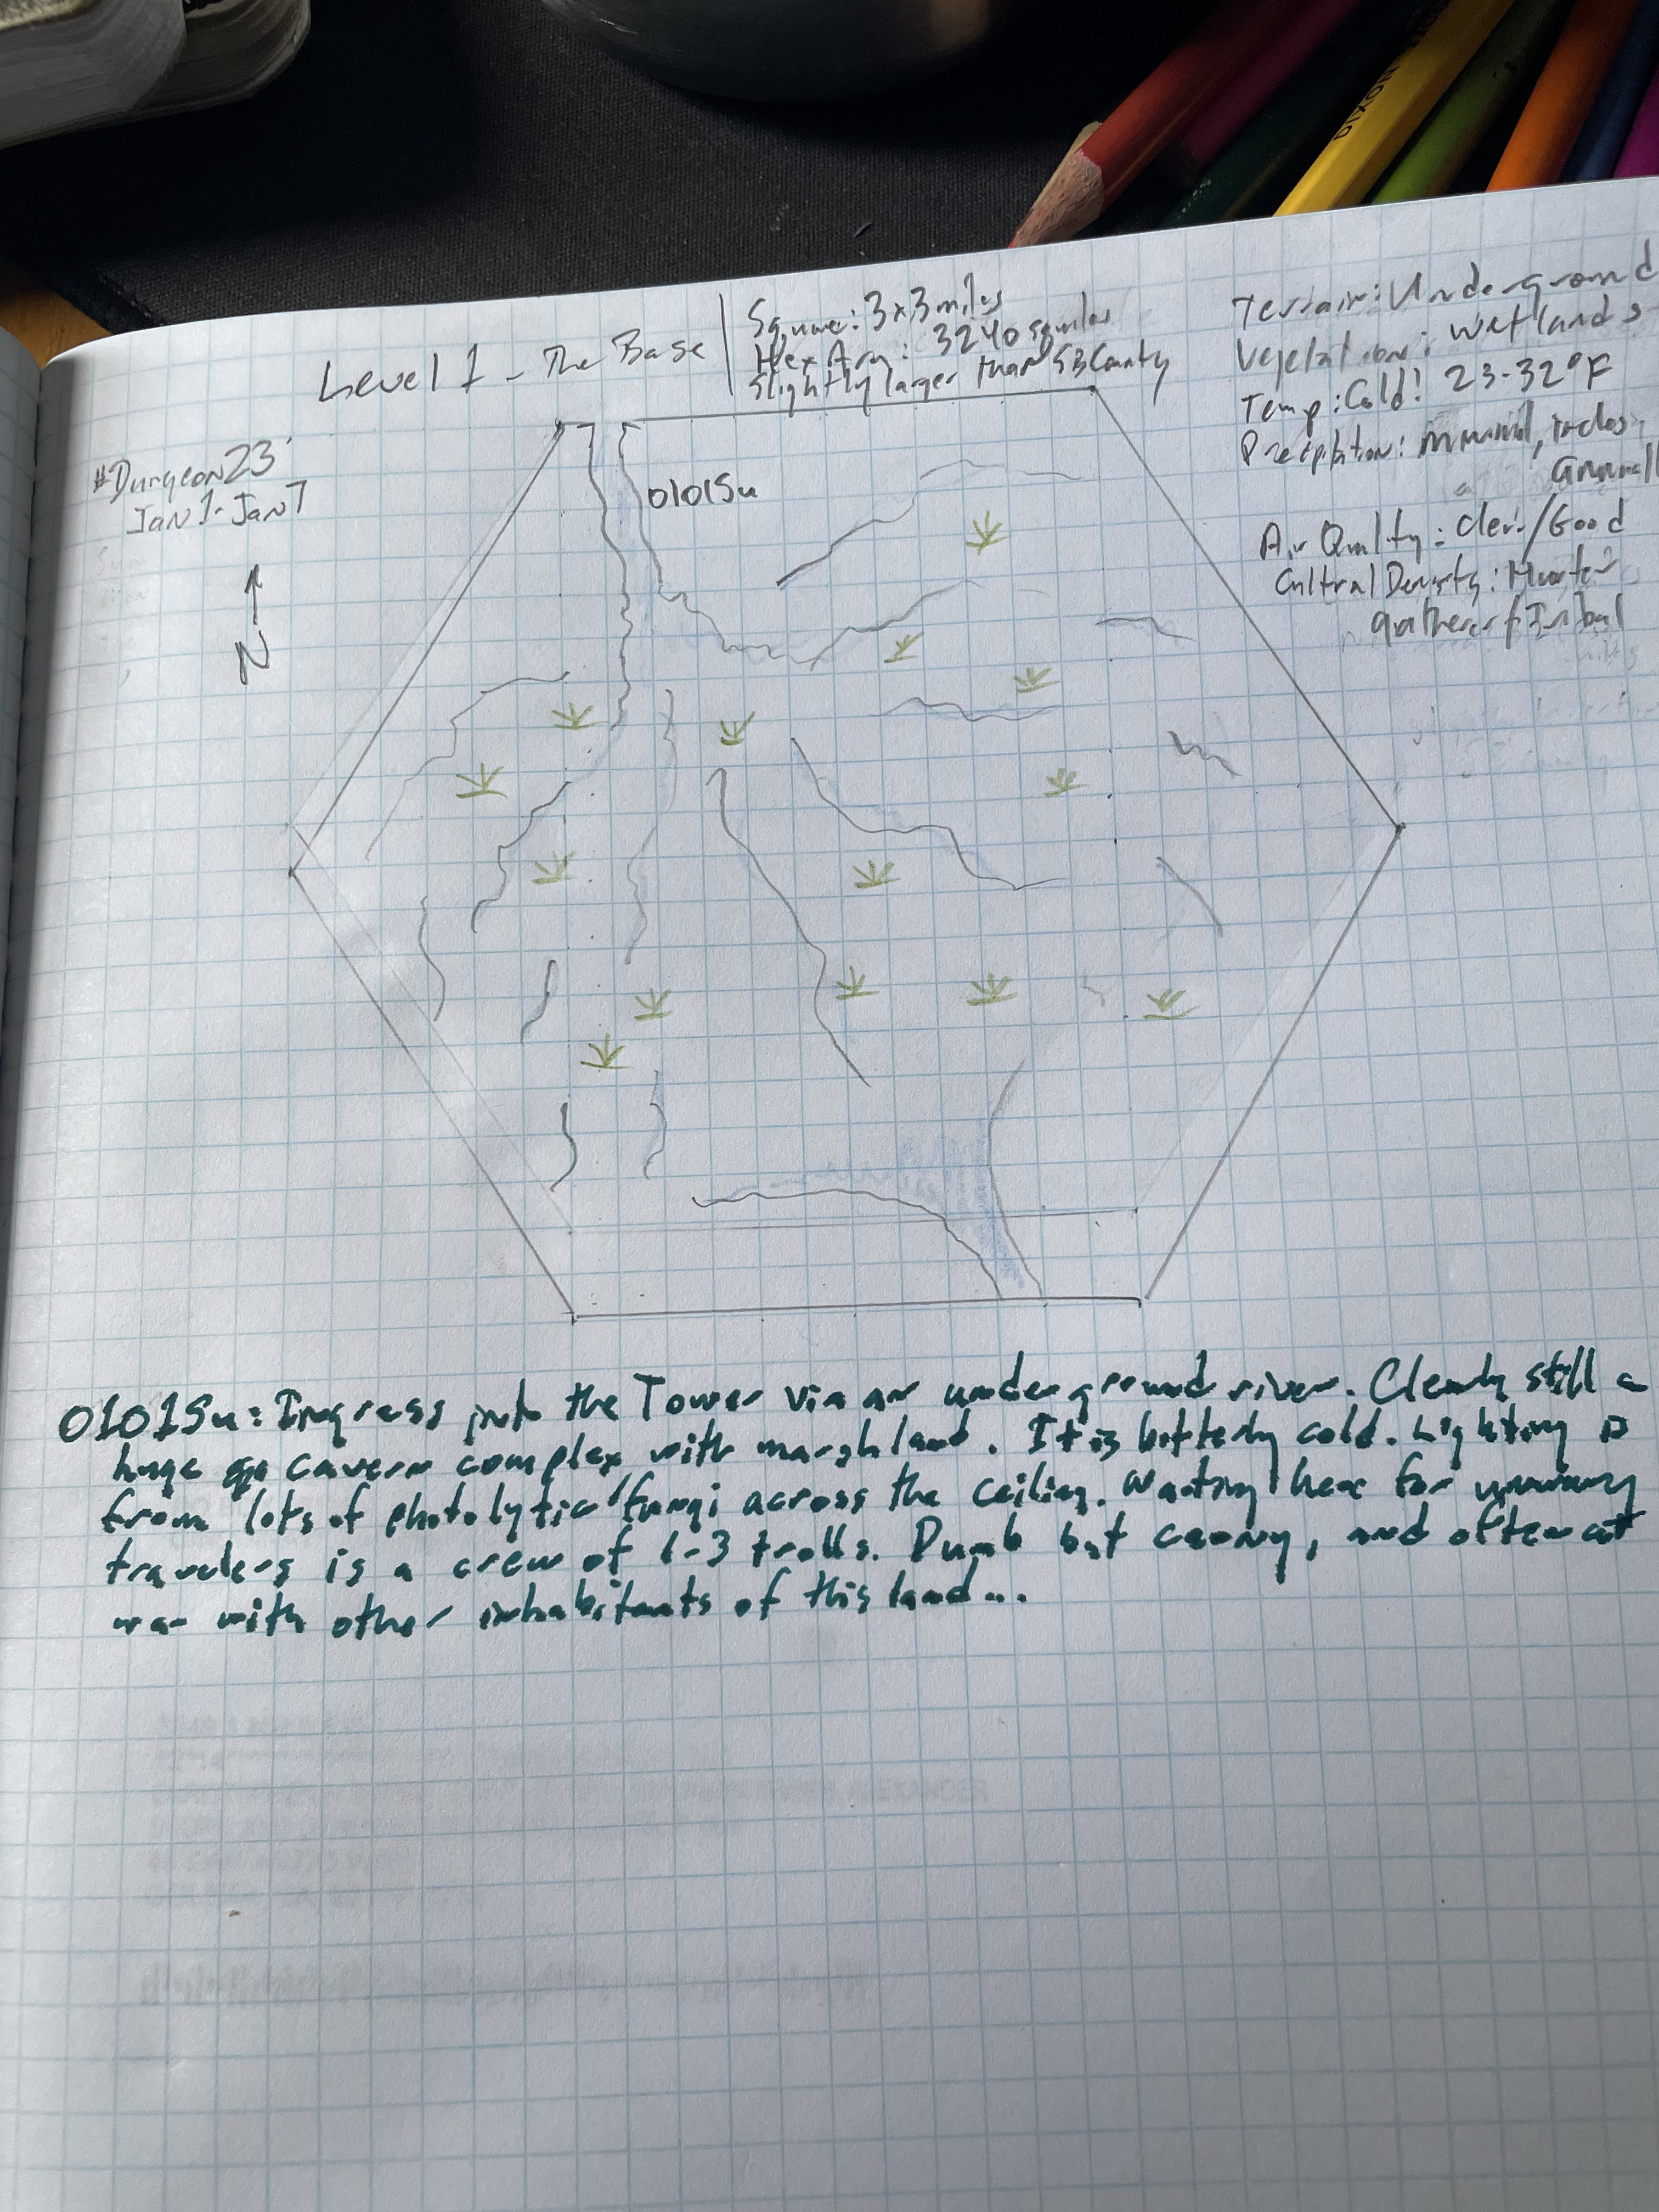 DIXON
Level 1 - The Base
Square: 3x3 miles
Hex Area: 3240 sq miles
Slightly larger than SB County
Terrain: Underground
Vegetation: Wetlands
Temp: Cold! 23-32°F
Precipitation: minimal,
Air Quality: Clear/Good
Cultural Density: Hunter
gatherer/Tribal
#Dungeon23
Jan 1-Jan 7
N
0101Su
0101Su: Ingress into the Tower via an underground river. Clearly still a
huge cavern complex with marshland. It is bitterly cold. Lighting is
from lots of photolytic fungi across the ceiling. Waiting here for unwary
travelers is a crew of 1-3 trolls. Dumb but canny, and often at
war with other inhabitants of this land...